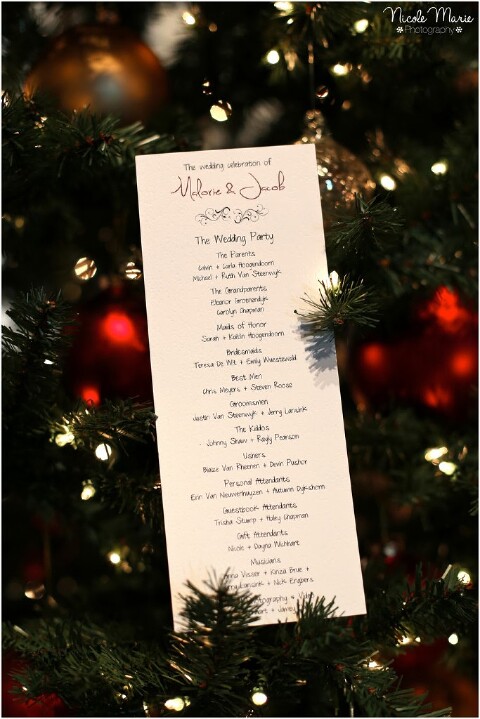 Nicole Marie
Photography
The wedding celebration of
Malorie & Jacob
The Wedding Party
The Parents
Calvin + Carla Hoogendoorn
Michael + Ruth Van Steenwyk
The Grandparents
Eleanor Groenendyk
Carolyn Chapman
Maids of Honor
Sarah + Kaitlin Hoogendoorn
Bridesmaids
Teresa De Wit + Emily
Best Men
Chris Meyers + Steven Roose
Groomsmen
Justin Van Steenwyk + Jenny Lansink
The Kiddos
Johnny Shaw + Rayly Pearson
Ushers
Blaize Van Rheenen + Devin Pushor
Personal Attendants
Erin Van Nieuwenhuyzen + Autumn Dykshorn
Guestbook Attendants
Trisha Stump + Haley Chapman
Gift Attendants
Nicole + Dayna Wichhart
Musicians
Visser + Kinza Brue +
Lansink + Nick Engbers